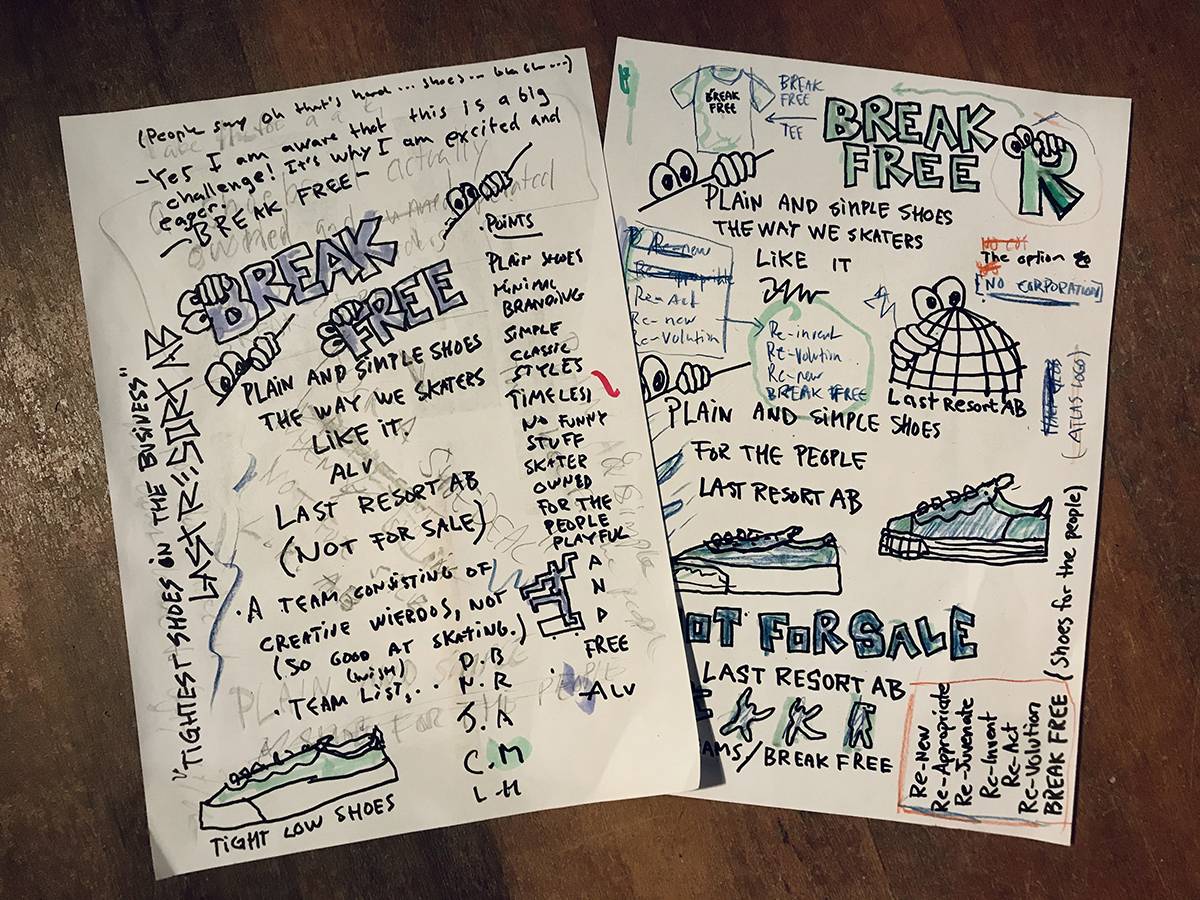 (People say oh that's hard... shoes... bla bla...)
-Yes I am aware that this is a big
challenge! It's why I am excited and
eager!
-BREAK FREE-
BREAK
FREE
PLAIN AND SIMPLE SHOES
THE WAY WE SKATERS
LIKE IT.
ALV
LAST RESORT AB
(NOT FOR SALE)
. A TEAM CONSISTING OF
CREATIVE WIERDOS, NOT
(SO GOOD AT SKATING.)
(WISH)
. TEAM LIST...
D.B
N.R
J.A
C.M
L.H
TIGHT LOW SHOES
"TIGHTEST SHOES IN THE BUSINESS"
LAST RESORT AB
.POINTS
PLAIN SHOES
MINIMAL
BRANDING
SIMPLE
CLASSIC
STYLES
TIMELESS
NO FUNNY
STUFF
SKATER
OWNED
FOR THE
PEOPLE
PLAYFUL
AND
FREE
-ALV
BREAK
FREE
BREAK
FREE
TEE
BREAK
FREE
R
PLAIN AND SIMPLE SHOES
THE WAY WE SKATERS
LIKE IT
Re-new
Re-Act
Re-new
Re-volution
Re-invent
Re-volution
Re-new
BREAK FREE
The option to
NO CORPORATION
Last Resort AB
(ATLAS LOGO)
PLAIN AND SIMPLE SHOES
FOR THE PEOPLE
LAST RESORT AB
OT FOR SALE
LAST RESORT AB
AMS/BREAK FREE
(Shoes for the people)
Re-New
Re-Appropriate
Re-Juvenate
Re-Invent
Re-Act
Re-Volution
BREAK FREE